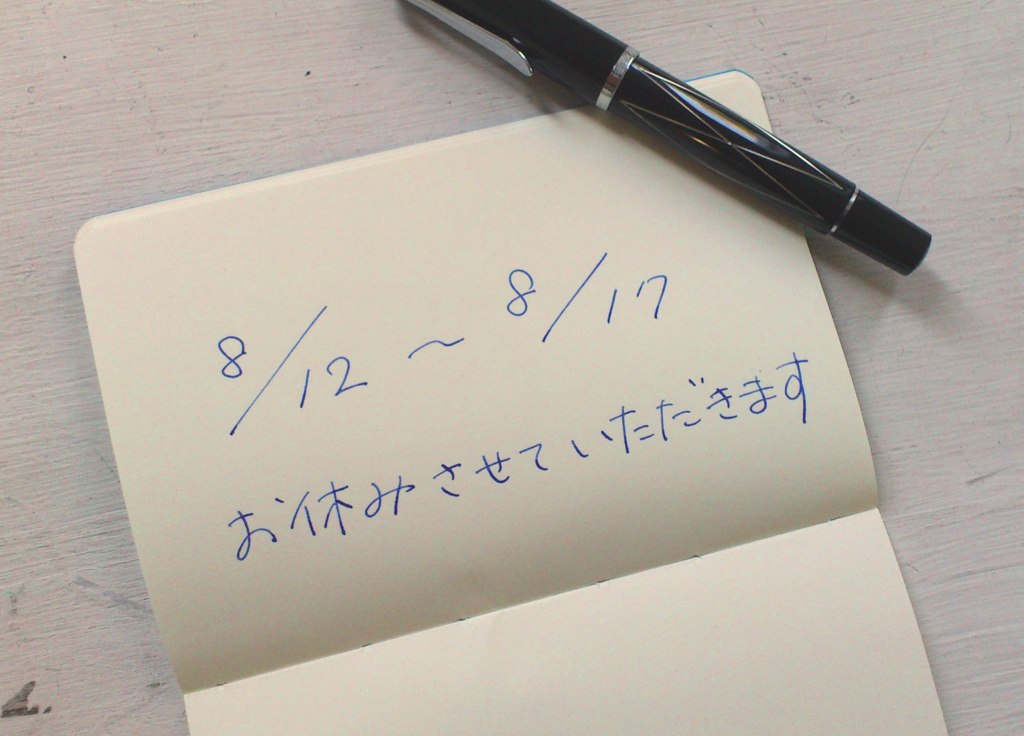 8/12 〜 8/17
お休みさせていただきます